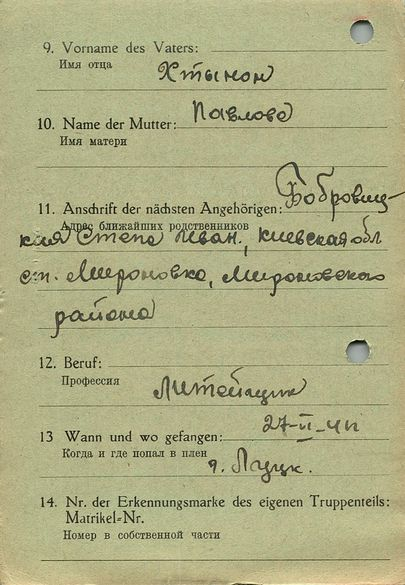 9. Vorname des Vaters:
Имя отца
10. Name der Mutter: Павлова
Имя матери
11. Anschrift der nächsten Angehörigen: Бобровиц-
Адрес ближайших родственников
кая Степа Иван, Киевская обл
Мироновка, Мироновского
района
12. Beruf:
Профессия
Литейщик
13 Wann und wo gefangen:
Когда и где попал в плен
г. Луцк.
14. Nr. der Erkennungsmarke des eigenen Truppenteils:
Matrikel-Nr.
Номер в собственной части